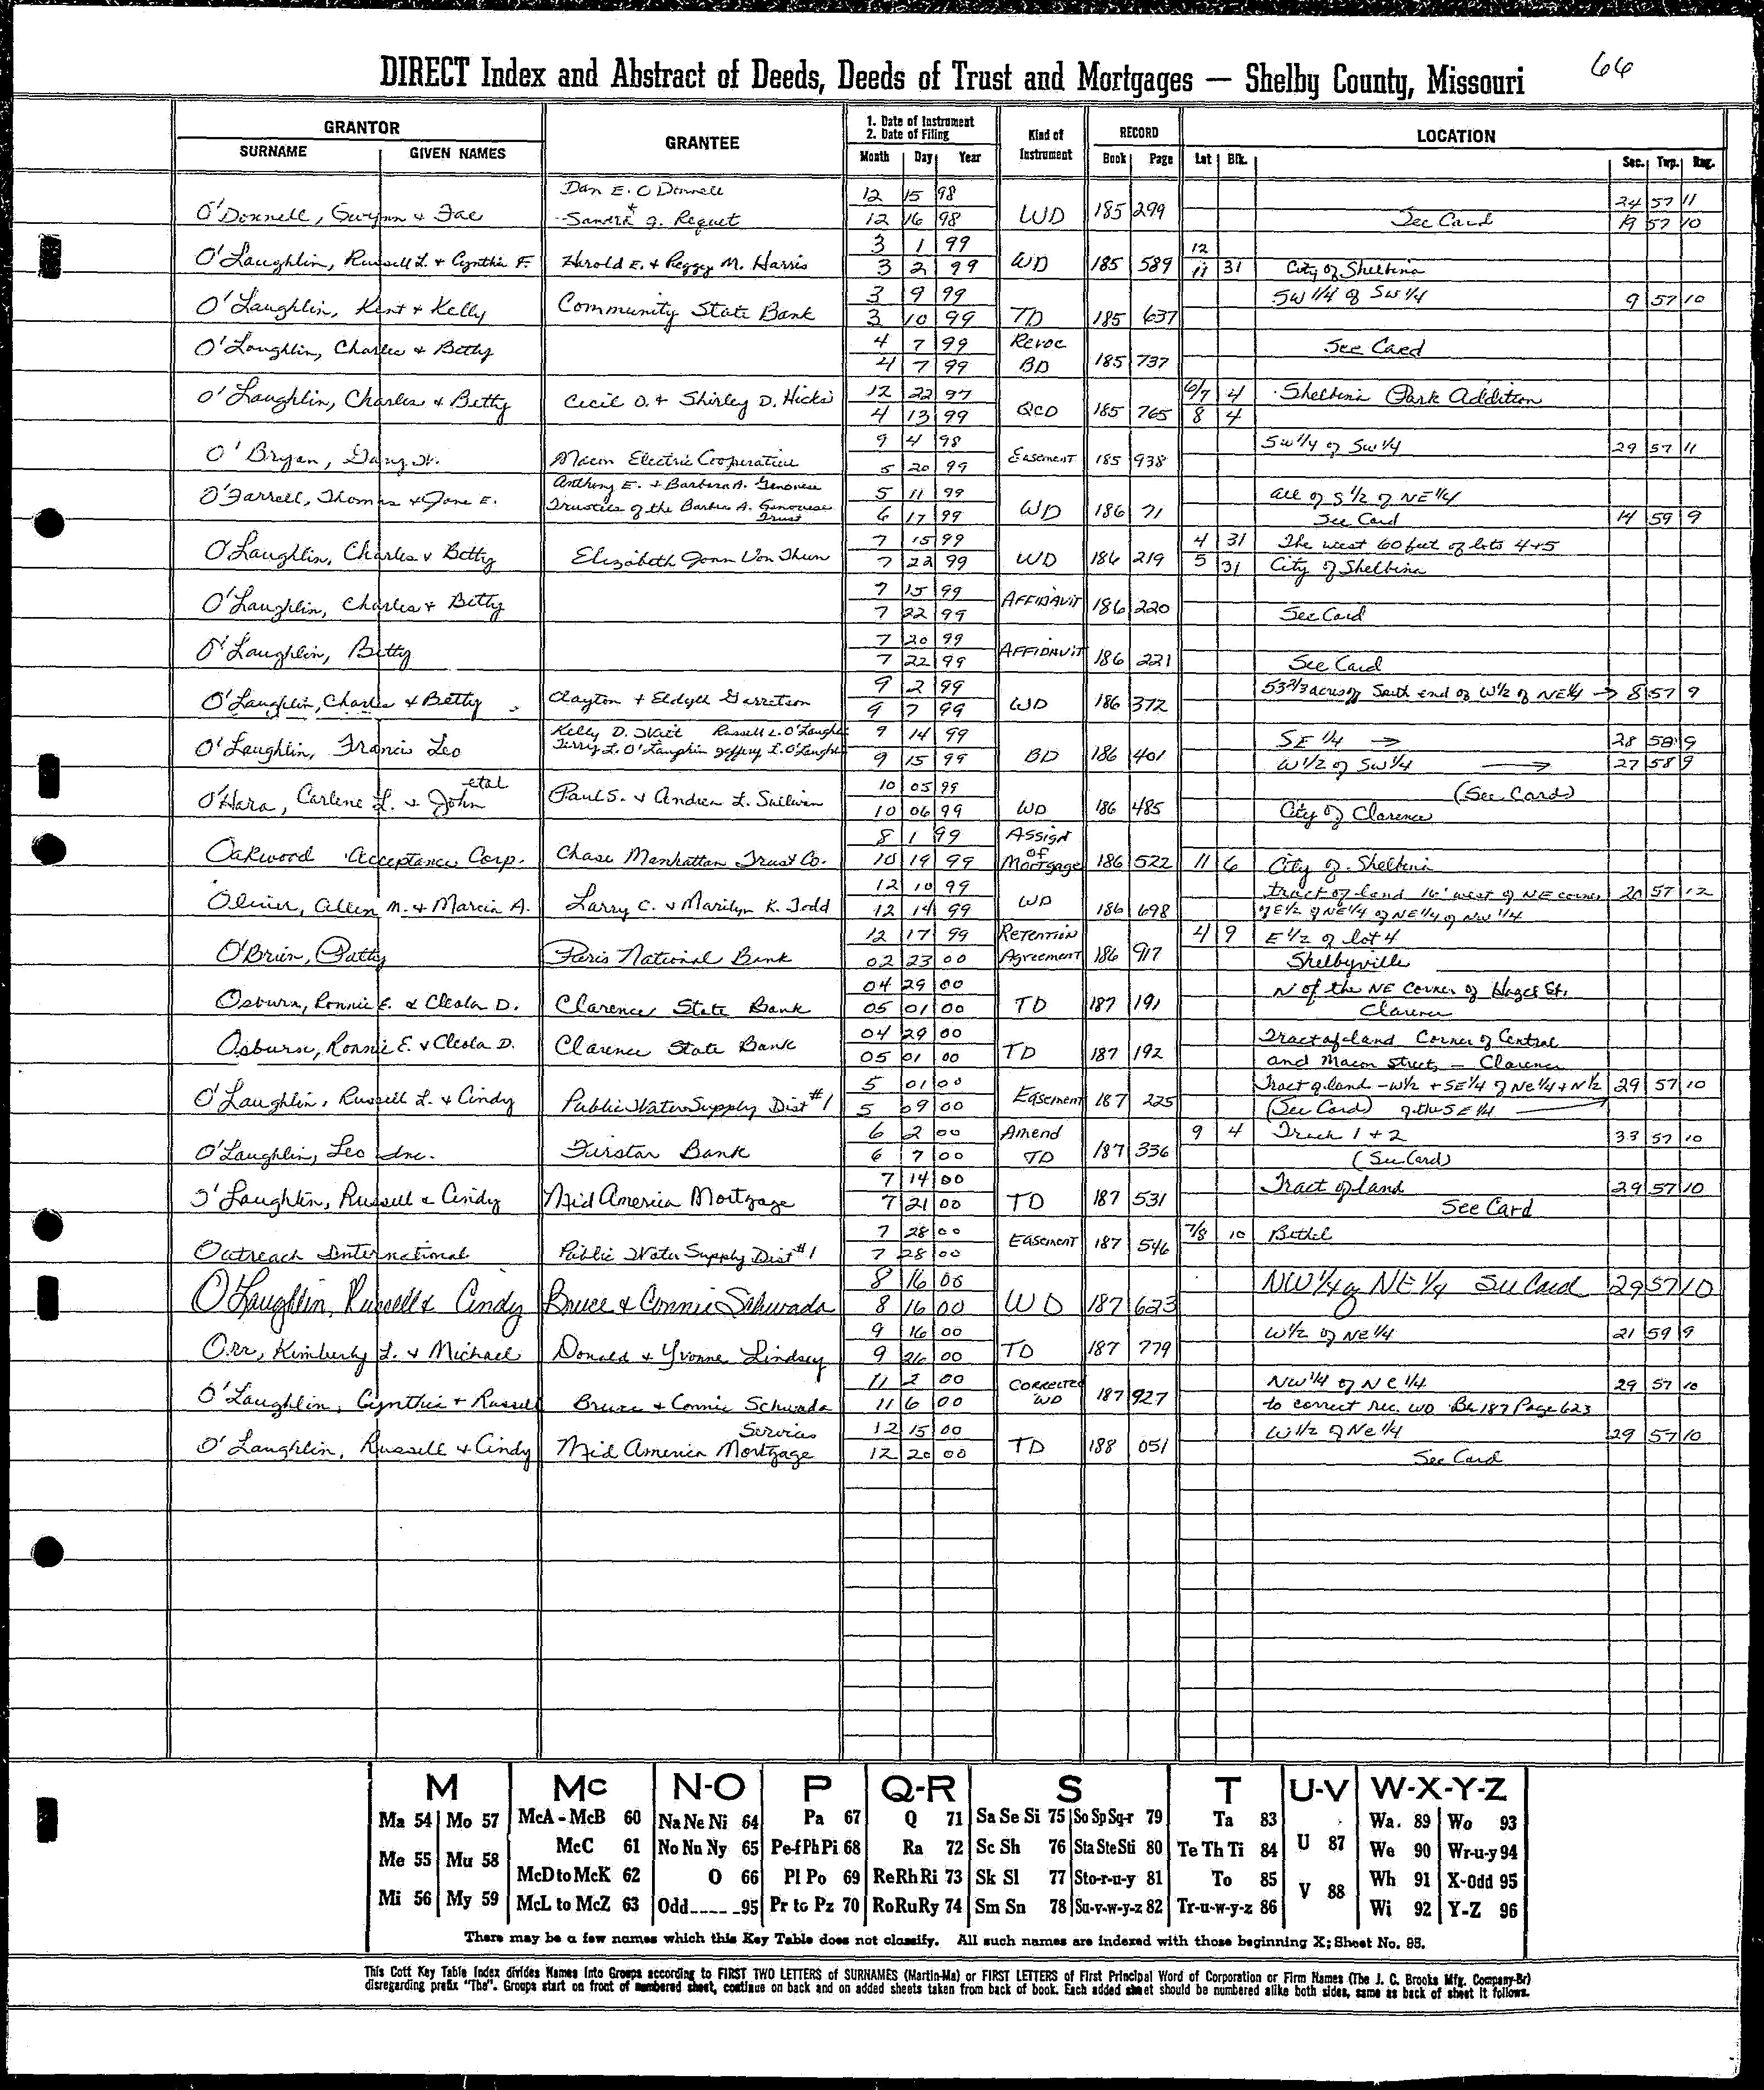 66
DIRECT Index and Abstract of Deeds, Deeds of Trust and Mortgages — Shelby County, Missouri
GRANTOR
SURNAME GIVEN NAMES
GRANTEE
1. Date of Instrument
2. Date of Filing
Month Day Year
Kind of
Instrument
RECORD
Book Page
LOCATION
Lot Blk. Sec. Twp. Rng.
Dan E. O Donnell 12 15 98 24 57 11
O'Donnell, Gwynn & Fae & Sandra J. Requet 12 16 98 WD 185 299 See Card 19 57 10
3 1 99 12
O'Laughlin, Russell L. & Cynthia F. Harold E. & Peggy M. Harris 3 2 99 WD 185 589 11 31 City of Shelbina
3 9 99 SW 1/4 of SW 1/4 9 57 10
O'Laughlin, Kent + Kelly Community State Bank 3 10 99 TD 185 637
O'Laughlin, Charles & Betty 4 7 99 Revoc See Card
4 7 99 BD 185 737
O'Laughlin, Charles & Betty Cecil O. & Shirley D. Hicks 12 22 97 6/7 4 Shelbina Park Addition
4 13 99 QCD 185 765 8 4
9 4 98 SW 1/4 of SW 1/4 29 57 11
O'Bryan, Macon Electric Cooperative 5 20 99 Easement 185 938
Anthony E. & Barbara A. Genovese 5 11 99 all of S 1/2 of NE 1/4
O'Farrell, Thomas & Jane E. Trustees of the Barbra A. Genovese Trust 6 17 99 WD 186 71 See Card 14 59 9
7 15 99 4 31 The west 60 feet of lots 4+5
O'Laughlin, Charles & Betty Elizabeth Von Thun 7 22 99 WD 186 219 5 31 City of Shelbina
7 15 99
O'Laughlin, Charles & Betty 7 22 99 AFFIDAVIT 186 220 See Card
7 20 99
O'Laughlin, Betty 7 22 99 AFFIDAVIT 186 221 See Card
9 2 99 53 2/3 acres off South end of W 1/2 of NE 1/4 → 8 57 9
O'Laughlin, Charles & Betty Clayton + Eldyth Garretson 9 7 99 WD 186 372
Kelly D. Wait Russell L. O'Laughlin 9 14 99 SE 1/4 → 28 58 9
O'Laughlin, Francis Leo Terry L. O'Laughlin Jeffery L. O'Laughlin 9 15 99 BD 186 401 W 1/2 of SW 1/4 → 27 58 9
etal 10 05 99 (See Card)
O'Hara, Carlene L. & John Paul S. & Andrea L. Sullivan 10 06 99 WD 186 485 City of Clarence
8 1 99 Assign of
Oakwood Acceptance Corp. Chase Manhattan Trust Co. 10 19 99 Mortgage 186 522 11 6 City of Shelbina
12 10 99 tract of land 16' west of NE corner 20 57 12
Oliver, Allen M. & Marcia A. Larry C. & Marilyn K. Todd 12 14 99 WD 186 698 of E 1/2 of NE 1/4 of NE 1/4 of NW 1/4
12 17 99 Retention 4 9 E 1/2 of lot 4
O'Brien, Patty Paris National Bank 02 23 00 Agreement 186 917 Shelbyville
04 29 00 N of the NE Corner of St.
Osburn, Ronnie E. & Cleola D. Clarence State Bank 05 01 00 TD 187 191 Clarence
04 29 00 Tract of land Corner of Central
Osburn, Ronnie E. & Cleola D. Clarence State Bank 05 01 00 TD 187 192 and Macon Streets — Clarence
5 01 00 Tract of land - W 1/2 + SE 1/4 of NE 1/4 + N 1/2 29 57 10
O'Laughlin, Russell L. & Cindy Public Water Supply Dist #1 5 09 00 Easement 187 225 (See Card) of the SE 1/4
6 2 00 Amend 9 4 Track 1 + 2 33 57 10
O'Laughlin, Leo Inc. Firstar Bank 6 7 00 TD 187 336 (See Card)
7 14 00 Tract of land 29 57 10
O'Laughlin, Russell & Cindy Mid America Mortgage 7 21 00 TD 187 531 See Card
7 28 00 7/8 10 Bethel
Outreach International Public Water Supply Dist #1 7 28 00 Easement 187 546
8 16 00 NW 1/4 of NE 1/4 See Card 29 57 10
O'Laughlin, Russell & Cindy Bruce & Connie Schwada 8 16 00 WD 187 623
9 16 00 W 1/2 of NE 1/4 21 59 9
Orr, Kimberly L. & Michael Donald & Yvonne Lindsey 9 26 00 TD 187 779
11 2 00 Corrected NW 1/4 of NE 1/4 29 57 10
O'Laughlin, Cynthia + Russell Bruce & Connie Schwada 11 6 00 WD 187 927 to correct rec. WD Bk 187 Page 623
Services 12 15 00 W 1/2 of NE 1/4 29 57 10
O'Laughlin, Russell & Cindy Mid America Mortgage 12 20 00 TD 188 051 See Card
M Mc N-O P Q-R S T U-V W-X-Y-Z
Ma 54 Mo 57 McA - McB 60 Na Ne Ni 64 Pa 67 Q 71 Sa Se Si 75 So Sp Sq-r 79 Ta 83 Wa. 89 Wo 93
McC 61 No Nu Ny 65 Pe-f Ph Pi 68 Ra 72 Sc Sh 76 Sta Ste Sti 80 Te Th Ti 84 U 87 We 90 Wr-u-y 94
Me 55 Mu 58 McD to McK 62 O 66 Pl Po 69 Re Rh Ri 73 Sk Sl 77 Sto-r-u-y 81 To 85 Wh 91 X-Odd 95
Mi 56 My 59 McL to McZ 63 Odd 95 Pr to Pz 70 Ro Ru Ry 74 Sm Sn 78 Su-v-w-y-z 82 Tr-u-w-y-z 86 V 88 Wi 92 Y-Z 96
There may be a few names which this Key Table does not classify. All such names are indexed with those beginning X; Sheet No. 95.
This Cott Key Table Index divides Names Into Groups according to FIRST TWO LETTERS of SURNAMES (Martin-Ma) or FIRST LETTERS of First Principal Word of Corporation or Firm Names (The J. C. Brooks Mfg. Company-Br)
disregarding prefix "The". Groups start on front of numbered sheet, continue on back and on added sheets taken from back of book. Each added sheet should be numbered alike both sides, same as back of sheet it follows.